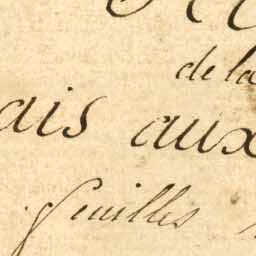 de la
ais aux
feuilles